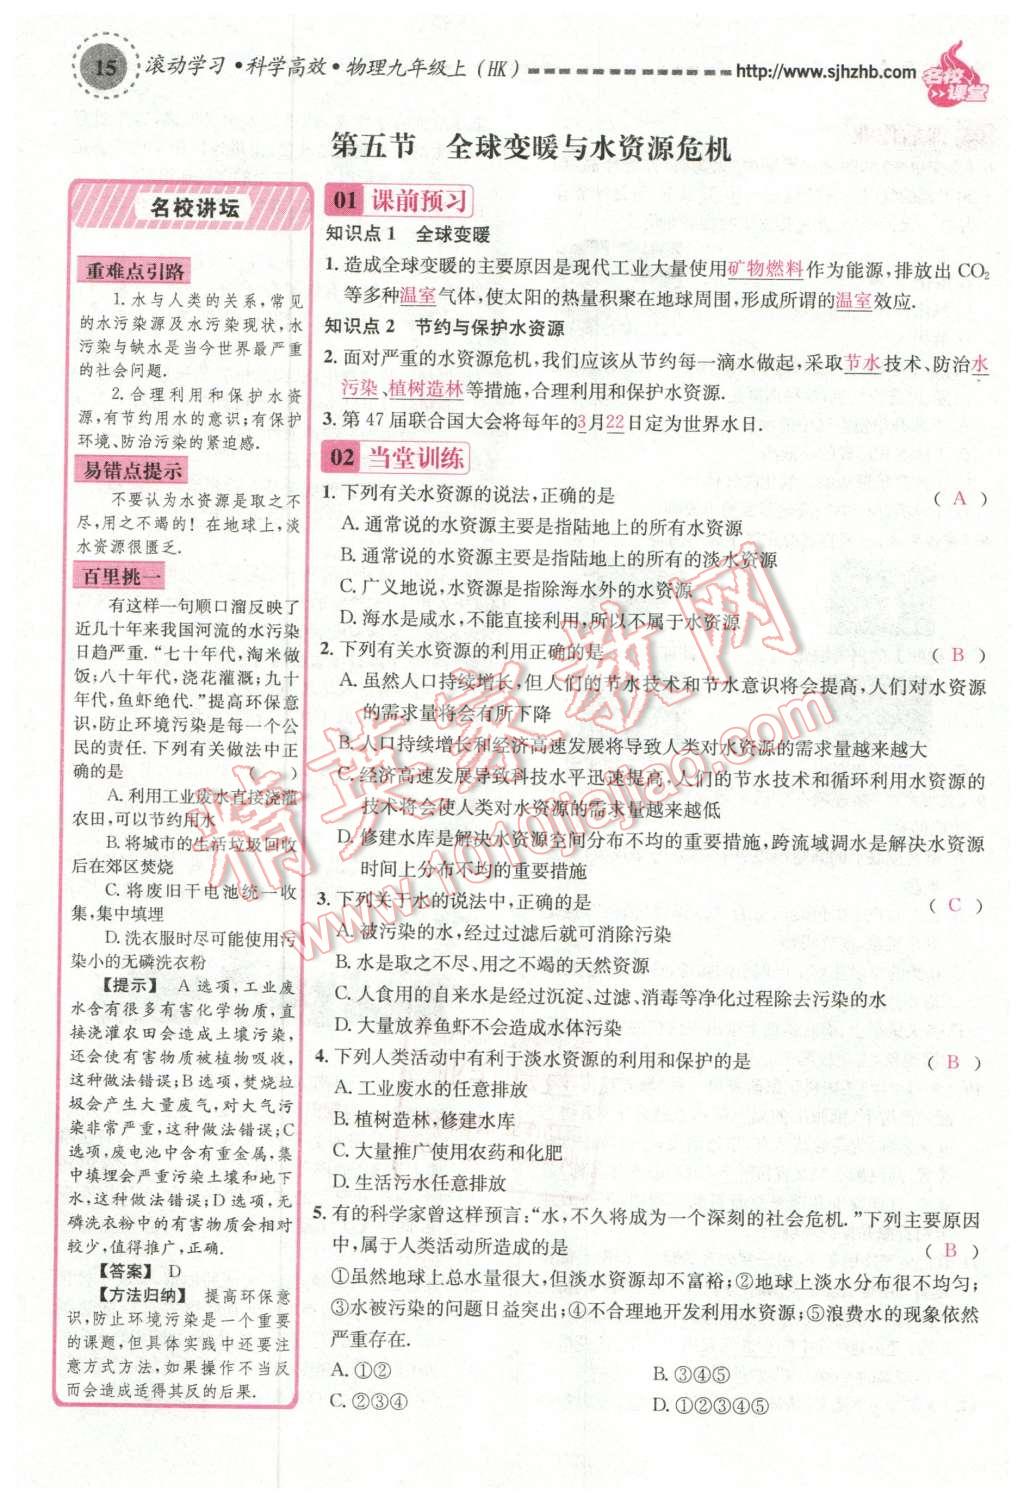 15 滚动学习·科学高效·物理九年级上(HK) http://www.sjhzhb.com 名校课堂
第五节 全球变暖与水资源危机
名校讲坛
重难点引路
1.水与人类的关系,常见
的水污染源及水污染现状,水
污染与缺水是当今世界最严重
的社会问题.
2.合理利用和保护水资
源,有节约用水的意识;有保护
环境、防治污染的紧迫感.
易错点提示
不要认为水资源是取之不
尽,用之不竭的!在地球上,淡
水资源很匮乏.
百里挑一
有这样一句顺口溜反映了
近几十年来我国河流的水污染
日趋严重.“七十年代,淘米做
饭;八十年代,浇花灌溉;九十
年代,鱼虾绝代.”提高环保意
识,防止环境污染是每一个公
民的责任.下列有关做法中正
确的是 ( )
A.利用工业废水直接浇灌
农田,可以节约用水
B.将城市的生活垃圾回收
后在郊区焚烧
C.将废旧干电池统一收
集,集中填埋
D.洗衣服时尽可能使用污
染小的无磷洗衣粉
【提示】 A选项,工业废
水含有很多有害化学物质,直
接浇灌农田会造成土壤污染,
还会使有害物质被植物吸收,
这种做法错误;B选项,焚烧垃
圾会产生大量废气,对大气污
染非常严重,这种做法错误;C
选项,废电池中含有重金属,集
中填埋会严重污染土壤和地下
水,这种做法错误;D选项,无
磷洗衣粉中的有害物质会相对
较少,值得推广,正确.
【答案】 D
【方法归纳】 提高环保意
识,防止环境污染是一个重要
的课题,但具体实践中还要注
意方式方法,如果操作不当反
而会造成适得其反的后果.
01 课前预习
知识点1 全球变暖
1.造成全球变暖的主要原因是现代工业大量使用矿物燃料作为能源,排放出CO₂
等多种温室气体,使太阳的热量积聚在地球周围,形成所谓的温室效应.
知识点2 节约与保护水资源
2.面对严重的水资源危机,我们应该从节约每一滴水做起,采取节水技术、防治水
污染、植树造林等措施,合理利用和保护水资源.
3.第47届联合国大会将每年的3月22日定为世界水日.
02 当堂训练
1.下列有关水资源的说法,正确的是 ( A )
A.通常说的水资源主要是指陆地上的所有水资源
B.通常说的水资源主要是指陆地上的所有的淡水资源
C.广义地说,水资源是指除海水外的水资源
D.海水是咸水,不能直接利用,所以不属于水资源
2.下列有关水资源的利用正确的是 ( B )
A.虽然人口持续增长,但人们的节水技术和节水意识将会提高,人们对水资源
的需求量将会有所下降
B.人口持续增长和经济高速发展将导致人类对水资源的需求量越来越大
C.经济高速发展导致科技水平迅速提高,人们的节水技术和循环利用水资源的
技术将会使人类对水资源的需求量越来越低
D.修建水库是解决水资源空间分布不均的重要措施,跨流域调水是解决水资源
时间上分布不均的重要措施
3.下列关于水的说法中,正确的是 ( C )
A.被污染的水,经过过滤后就可消除污染
B.水是取之不尽、用之不竭的天然资源
C.人食用的自来水是经过沉淀、过滤、消毒等净化过程除去污染的水
D.大量放养鱼虾不会造成水体污染
4.下列人类活动中有利于淡水资源的利用和保护的是 ( B )
A.工业废水的任意排放
B.植树造林,修建水库
C.大量推广使用农药和化肥
D.生活污水任意排放
5.有的科学家曾这样预言:“水,不久将成为一个深刻的社会危机.”下列主要原因
中,属于人类活动所造成的是 ( B )
①虽然地球上总水量很大,但淡水资源却不富裕;②地球上淡水分布很不均匀;
③水被污染的问题日益突出;④不合理地开发利用水资源;⑤浪费水的现象依然
严重存在.
A.①② B.③④⑤
C.②③④ D.①②③④⑤
精英家教网
www.1010jiajiao.com